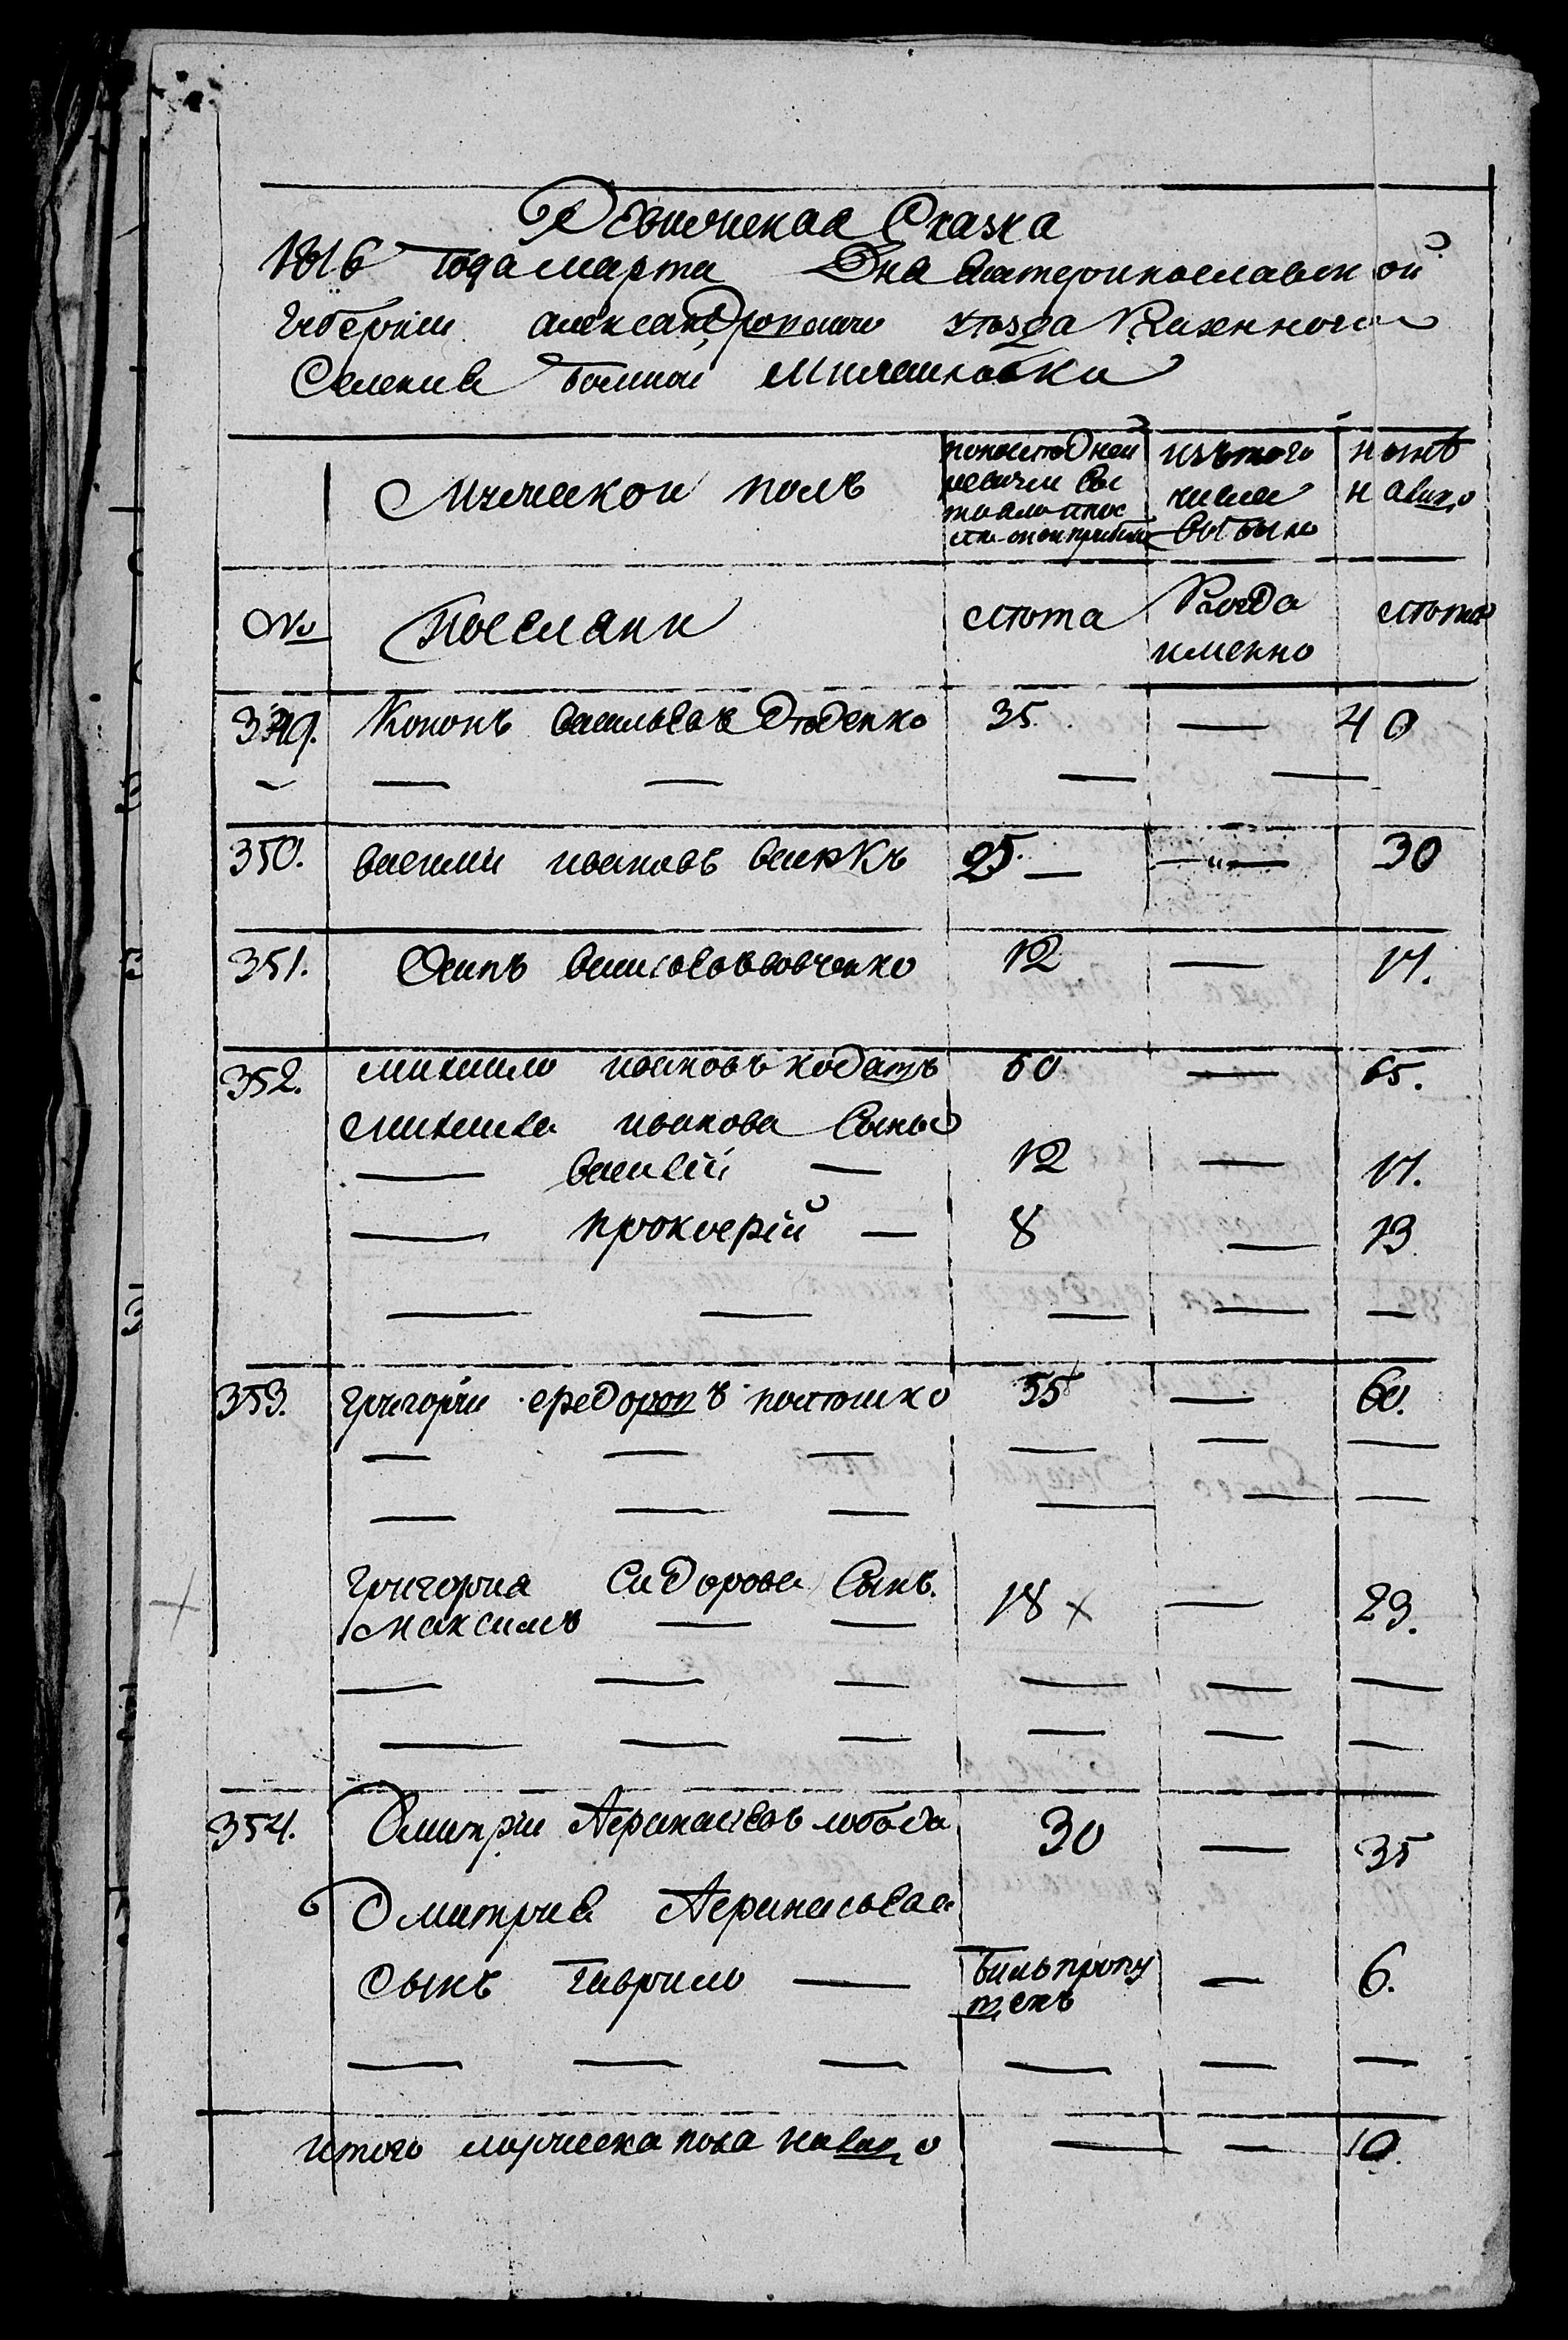 Ревижская Сказка
1816 года марта Дня Екатеринославской
губернии александровского уезда Казенного
Селения большой Михайловки
Мужеской полъ
по последней ревизии состояло и после оной прибыло
изъ того числа выбыло
ныне на лицо
№ Поселяни лета Когда именно лета
349. Кононъ васильевъ Дтоденко 35. — 40
350. василий ивановъ 25. — 30
351. Осипъ васильевъ вовченко 12 — 17.
352. михайло ивановъ кодать 60 — 65.
михайла иванова Сыны
— василій — 12 — 17.
— прокоерій — 8 — 13
353. григории федоровъ 55 — 60.
григория Сидорова Сынъ.
максимъ — — 18 × — 23.
354. Дмитрии Афанасьевъ лобода 30 — 35
Дмитрия Афанасьева
Сынъ гаврило — билъ пропущенъ — 6.
итого мужеска пола на лицо — — 10.